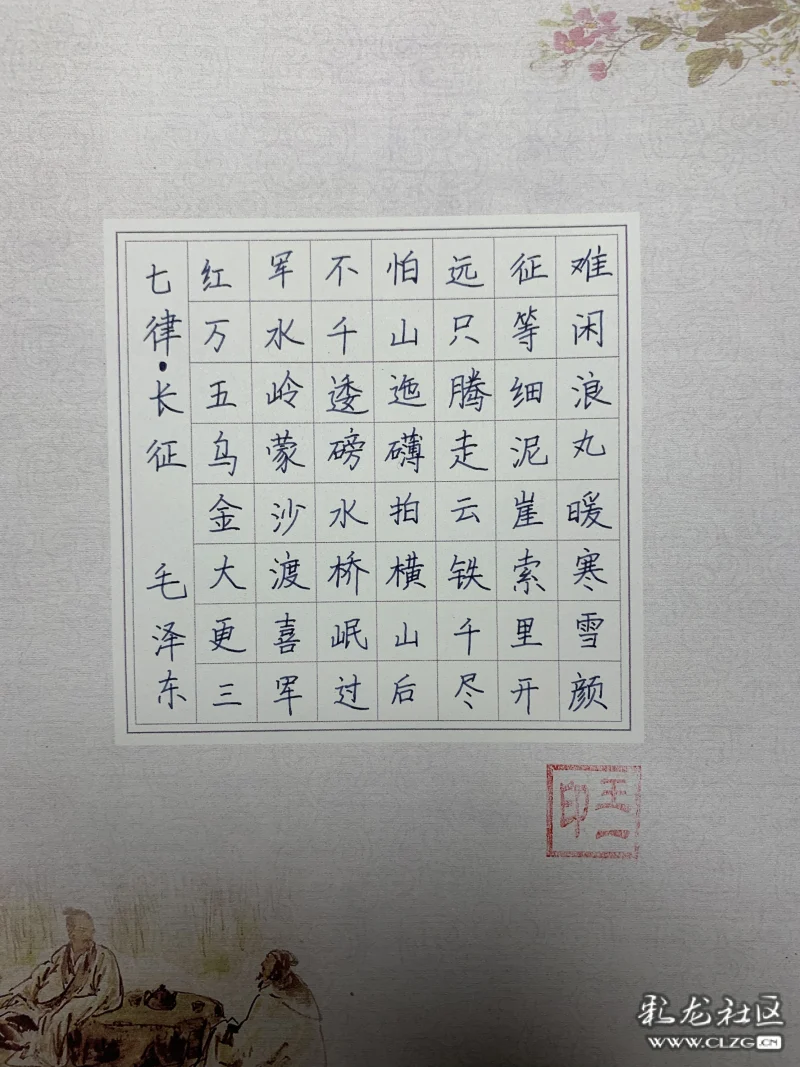 七律·长征 毛泽东
红军不怕远征难
万水千山只等闲
五岭逶迤腾细浪
乌蒙磅礴走泥丸
金沙水拍云崖暖
大渡桥横铁索寒
更喜岷山千里雪
三军过后尽开颜
彩龙社区
www.CLZG.CN